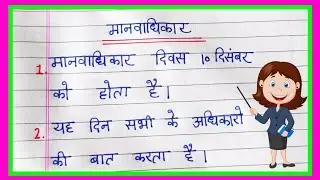 मानवाधिकार
1. मानवाधिकार दिवस 10 दिसंबर
को होता है।
2. यह दिन सभी के अधिकारो
की बात करता है।